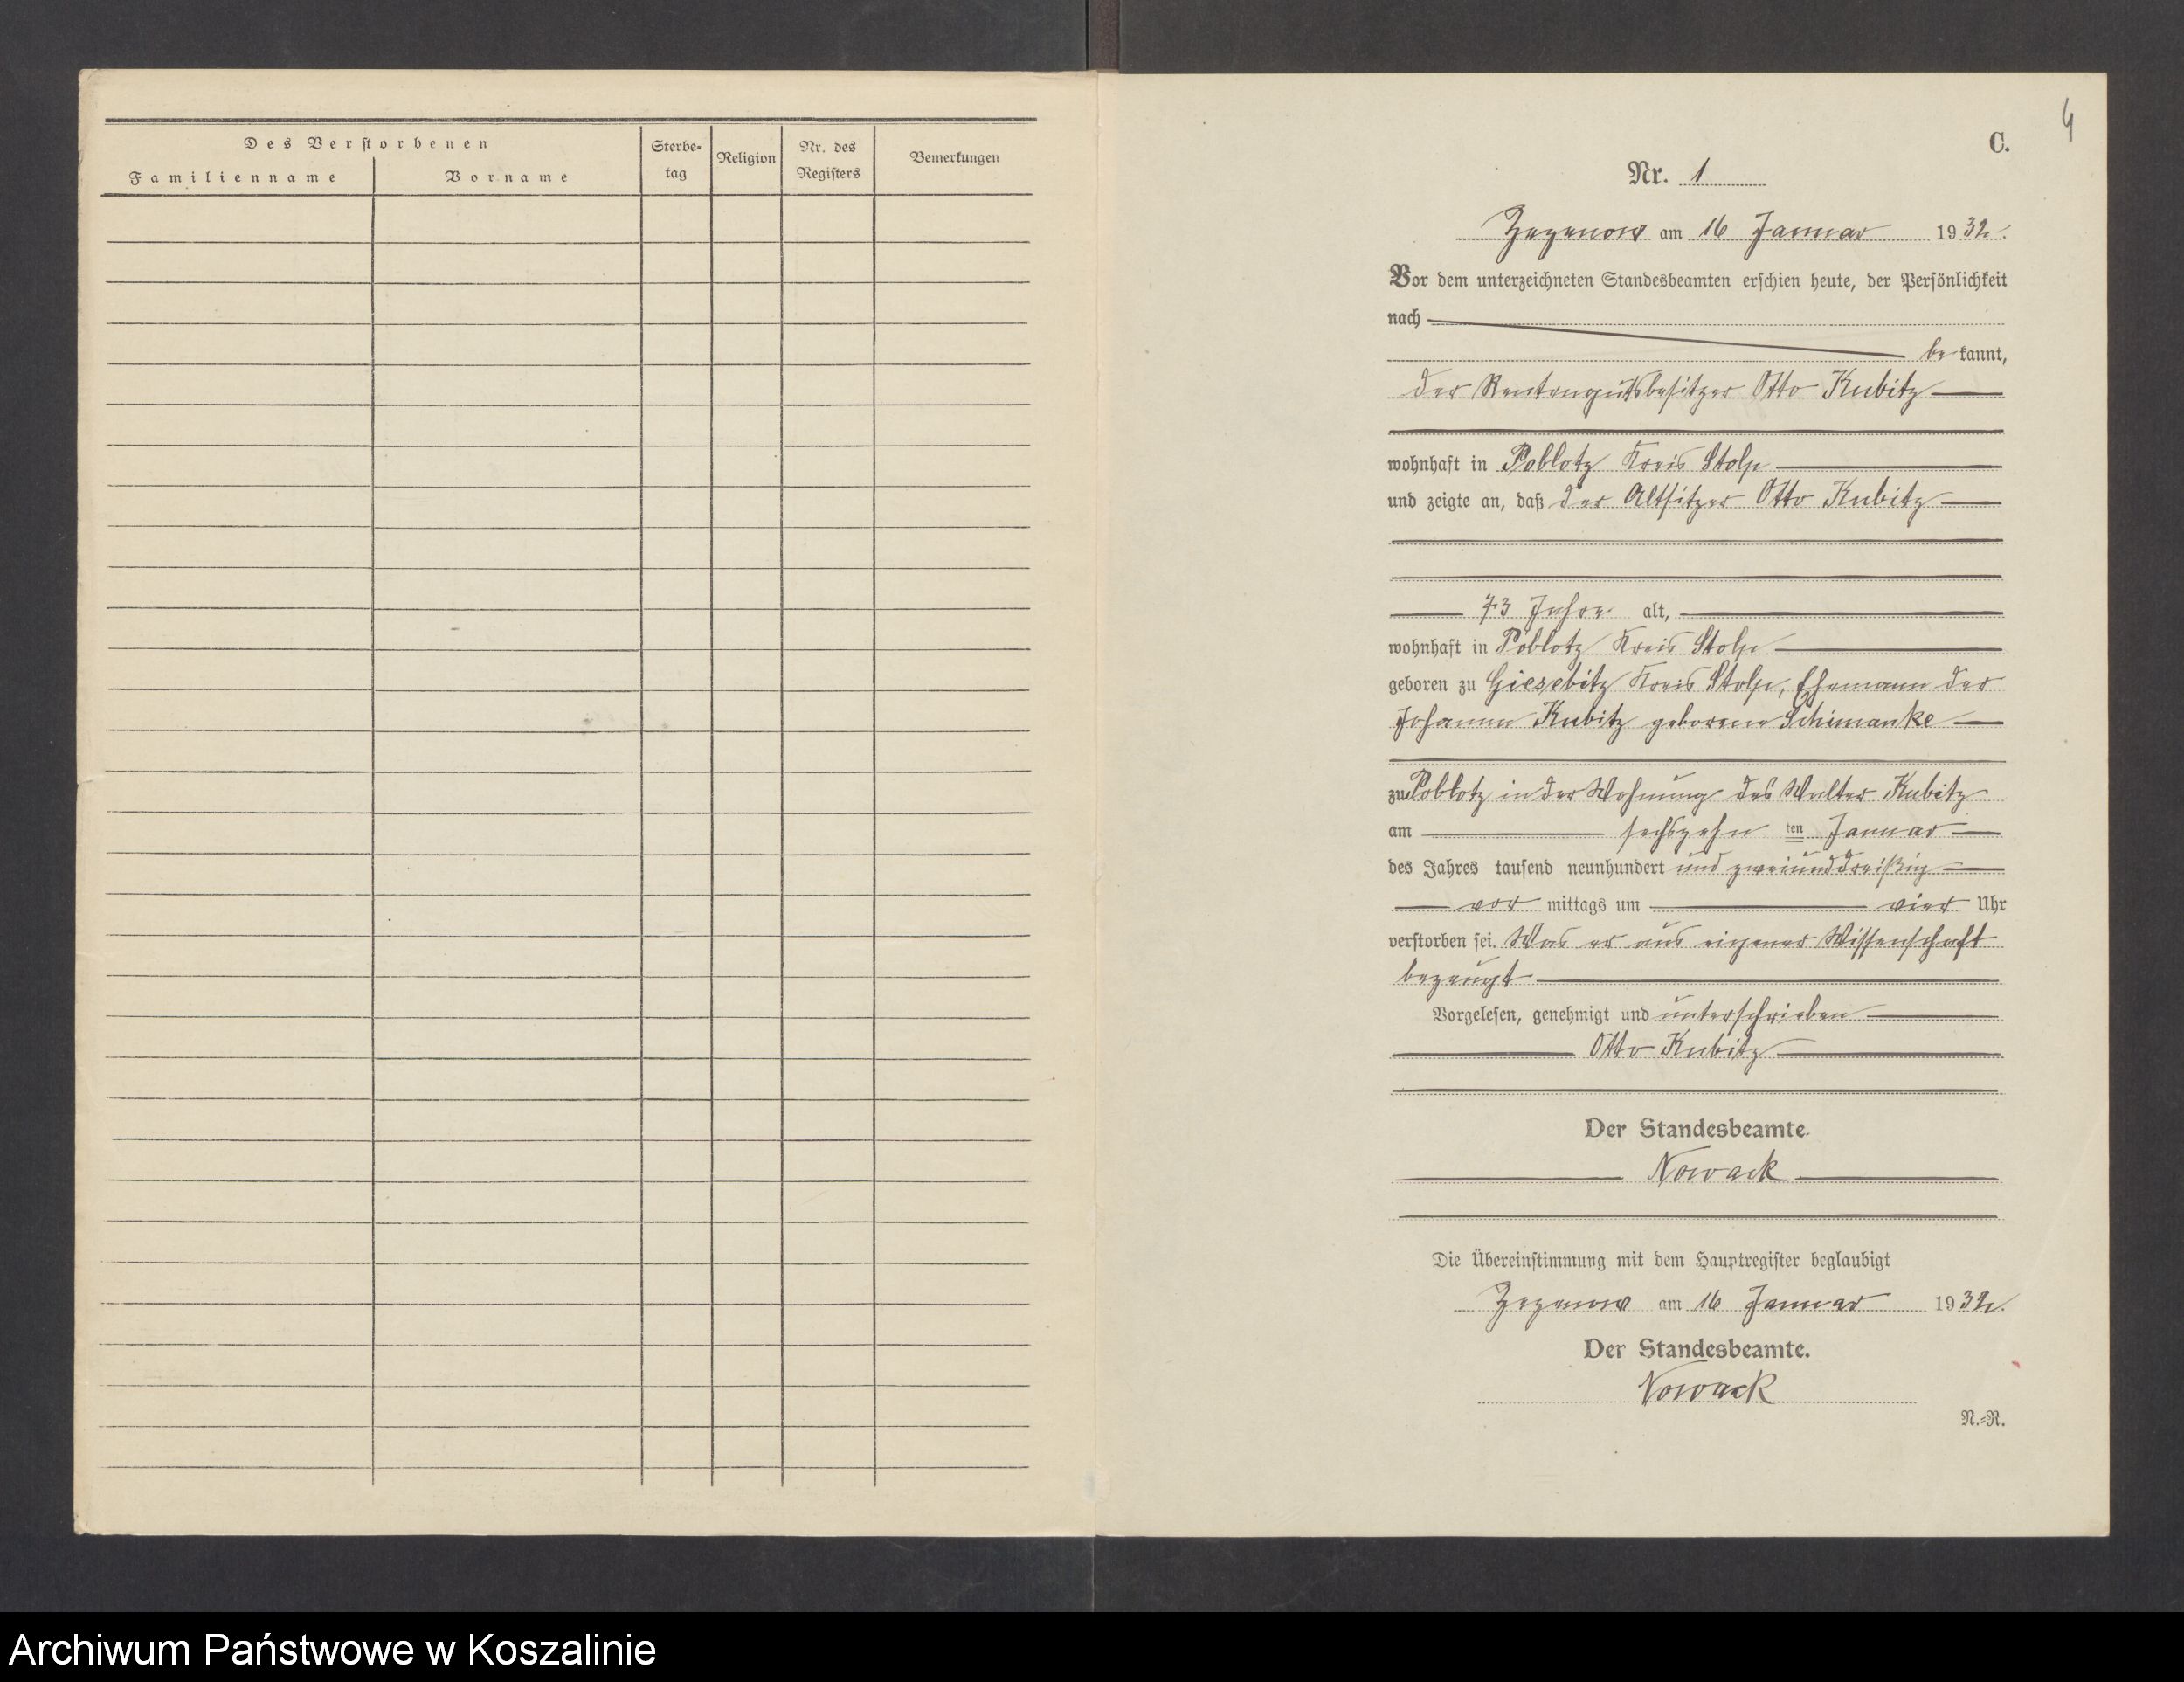 Des Verstorbenen
Familienname
Vorname
Sterbe-
tag
Religion
Nr. des
Registers
Bemerkungen
4
C.
Nr. 1
Zezenow am 16 Januar 1932.
Vor dem unterzeichneten Standesbeamten erschien heute, der Persönlichkeit
nach
bekannt,
der Rentengutsbesitzer Otto Kubitz
wohnhaft in Poblotz Kreis Stolp
und zeigte an, daß der Altsitzer Otto Kubitz
73 Jahre alt,
wohnhaft in Poblotz Kreis Stolp
geboren zu Giesebitz Kreis Stolp, Ehemann der
Johanna Kubitz geborene Schimanke
zu Poblotz in der Wohnung des Walter Kubitz
am sechszehn ten Januar
des Jahres tausend neunhundert und zweiunddreißig
vor mittags um vier Uhr
verstorben sei. Was er aus eigener Wissenschaft
bezeugt
Vorgelesen, genehmigt und unterschrieben
Otto Kubitz
Der Standesbeamte.
Nowack
Die Übereinstimmung mit dem Hauptregister beglaubigt
Zezenow am 16 Januar 1932.
Der Standesbeamte.
Nowack
N.-R.
Archiwum Państwowe w Koszalinie